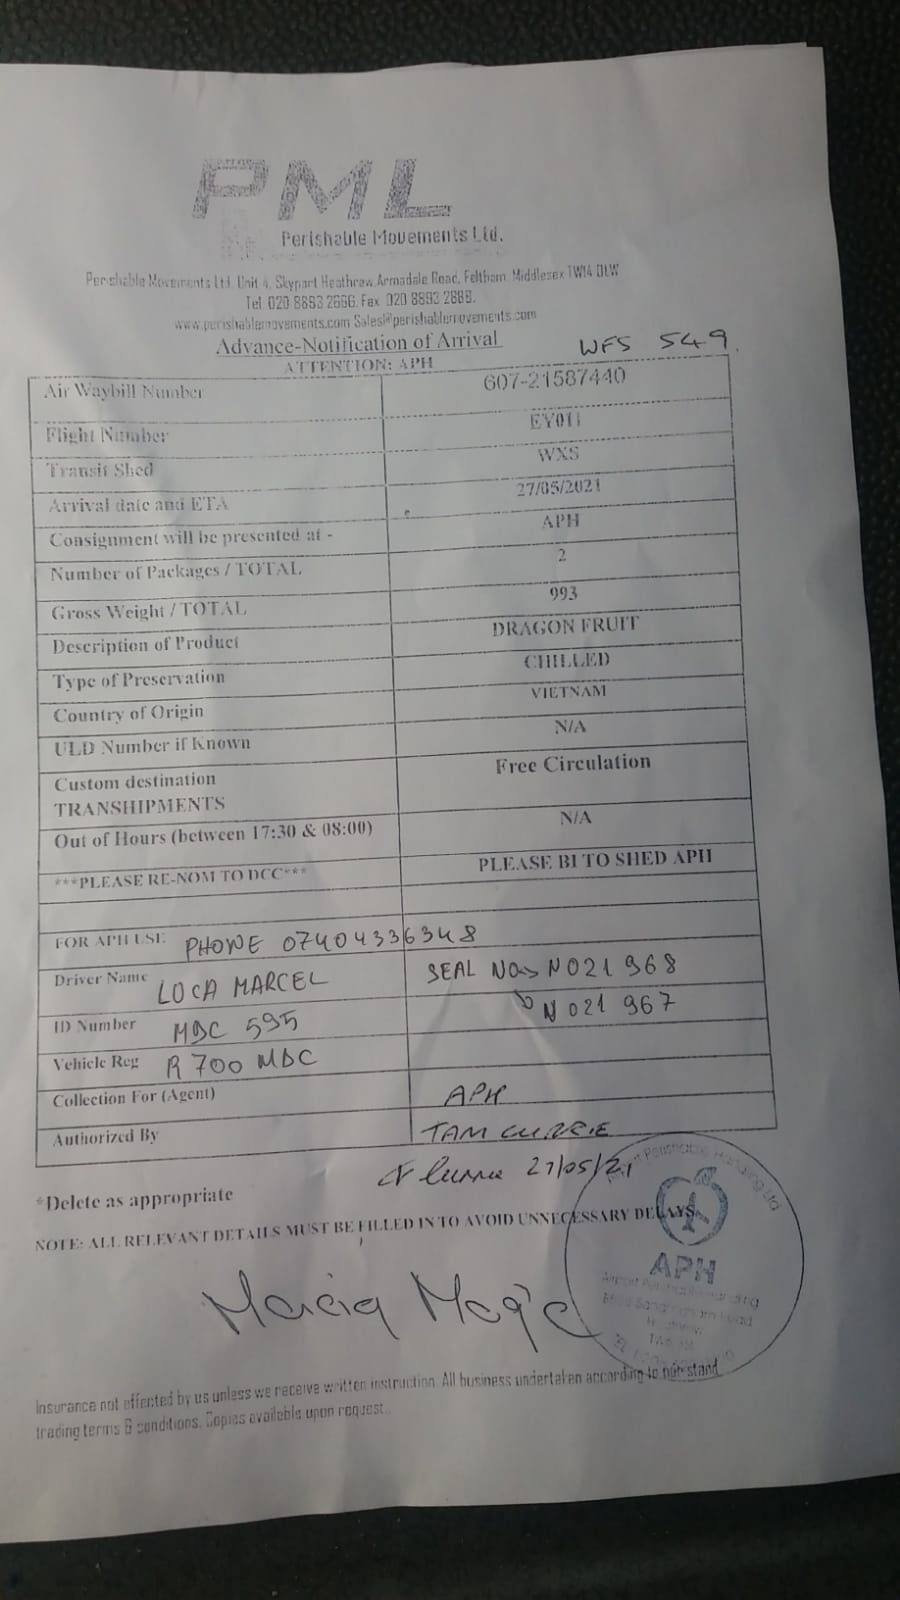 PML
Perishable Movements Ltd.
Perishable Movements Ltd. Unit 4, Skyport Heathrow, Armadale Road, Feltham, Middlesex TW14 0LW
Tel: 020 8893 2666. Fax 020 8893 2888.
www.perishablemovements.com Sales@perishablemovements.com
Advance-Notification of Arrival
WFS 549.
ATTENTION: APH
Air Waybill Number 607-21587440
Flight Number EY011
Transit Shed WXS
Arrival date and ETA 27/05/2021
Consignment will be presented at - APH
Number of Packages / TOTAL 2
Gross Weight / TOTAL 993
Description of Product DRAGON FRUIT
Type of Preservation CHILLED
Country of Origin VIETNAM
ULD Number if Known N/A
Custom destination Free Circulation
TRANSHIPMENTS
Out of Hours (between 17:30 & 08:00) N/A
***PLEASE RE-NOM TO DCC*** PLEASE BI TO SHED APH
FOR APH USE PHONE 07404336348
Driver Name LOCA MARCEL SEAL Nos N021 968
ID Number MDC 595 N021 967
Vehicle Reg R700 MDC
Collection For (Agent) APH
Authorized By TAM CURRIE
27/05/21
*Delete as appropriate
NOTE: ALL RELEVANT DETAILS MUST BE FILLED IN TO AVOID UNNECESSARY DELAYS
Perishable Handling Ltd
APH
Airport Perishable Handling
Insurance not effected by us unless we receive written instruction. All business undertaken according to our stand
trading terms & conditions. Copies available upon request.